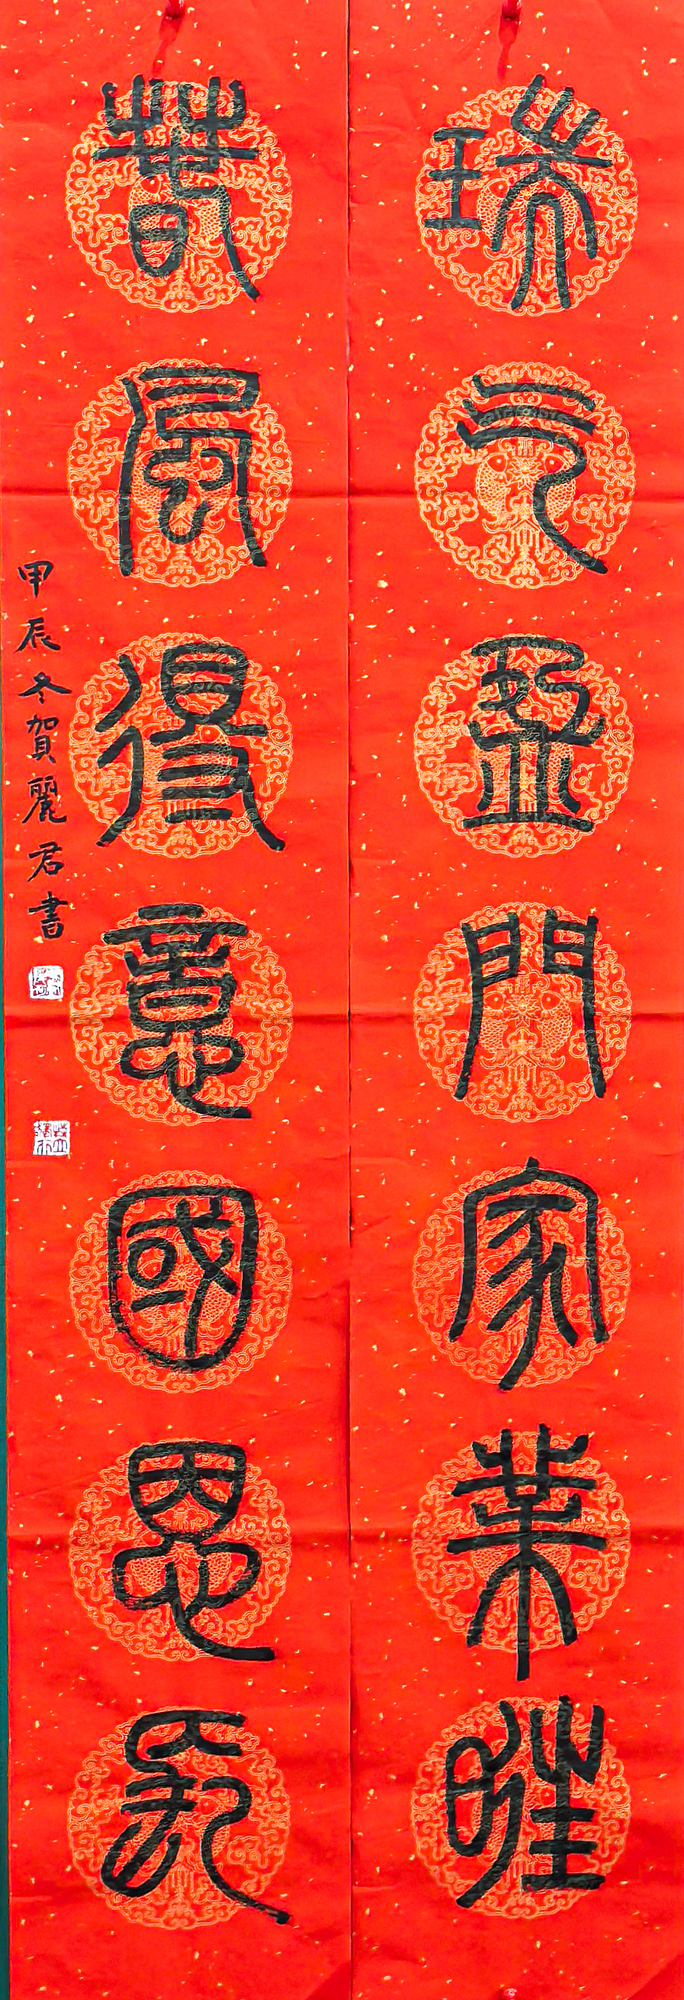 瑞气盈門家業旺
春風得意國恩長
甲辰冬賀麗君書